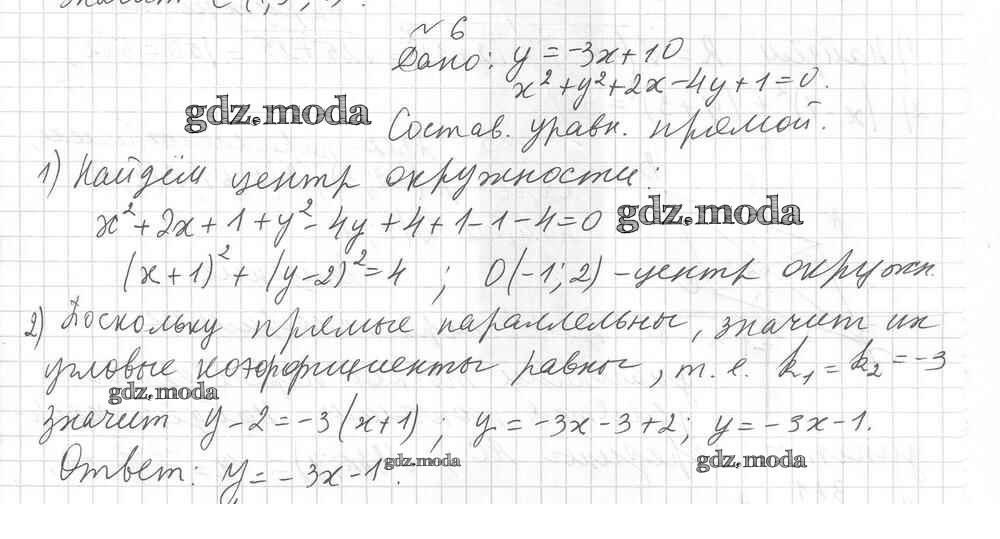 № 6
Дано: y = -3x+10
x²+y²+2x-4y+1=0.
gdz.moda
Состав. уравн. прямой.
1) Найдём центр окружности:
x²+2x+1+y²-4y+4+1-1-4=0
gdz.moda
(x+1)²+(y-2)²=4 ; O(-1; 2) - центр окружн.
2) Поскольку прямые параллельны, значит их
угловые коэффициенты равны, т. е. k₁ = k₂ = -3
gdz.moda
значит y-2=-3(x+1) ; y = -3x-3+2; y = -3x-1.
Ответ: y = -3x-1.
gdz.moda
gdz.moda